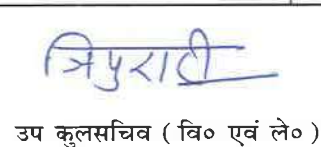 त्रिपुरारी
उप कुलसचिव ( वि० एवं ले० )